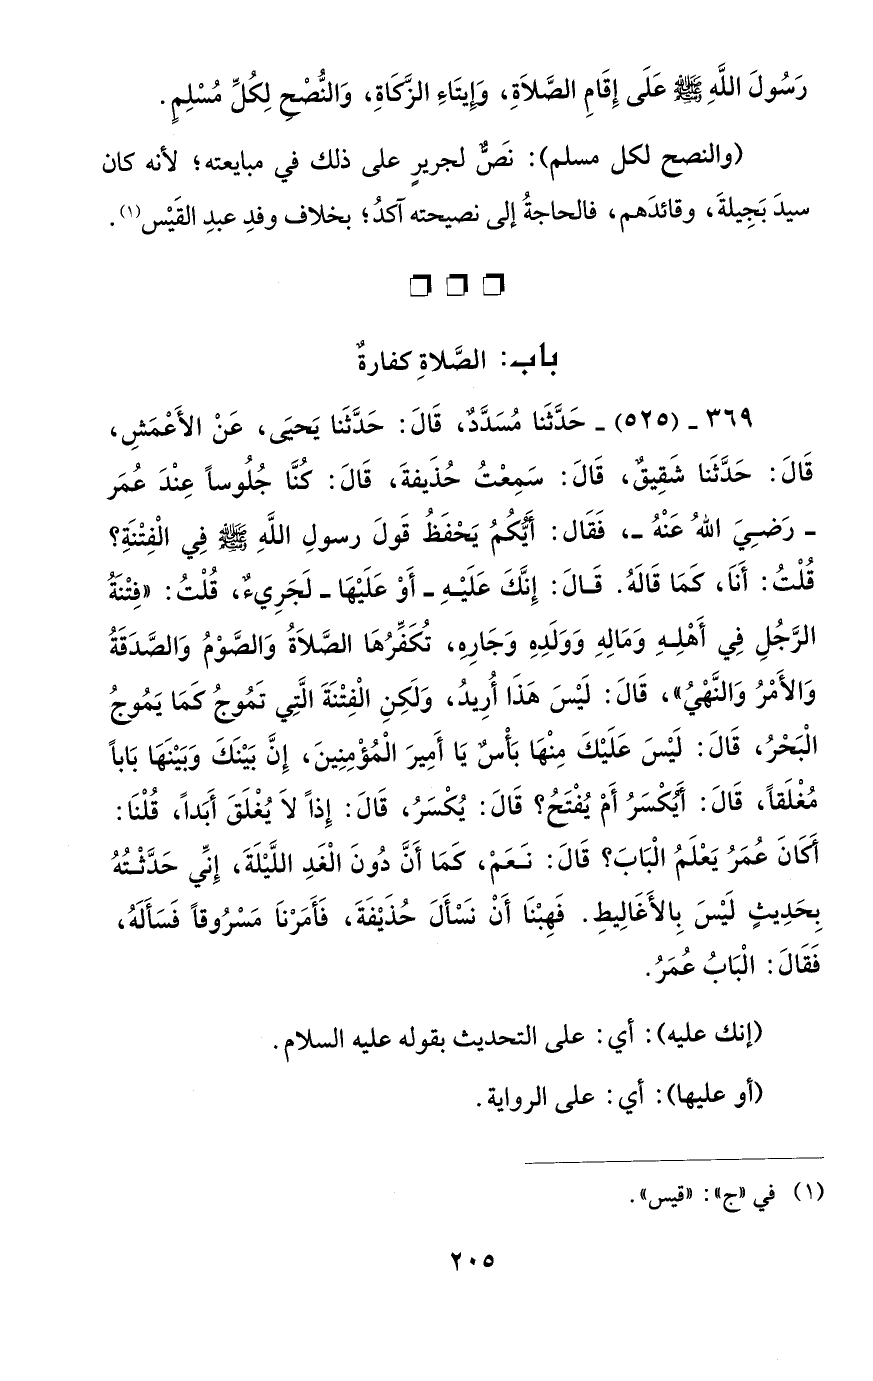 رَسُولَ اللَّهِ ﷺ عَلَى إِقَامِ الصَّلاَةِ، وَإِيتَاءِ الزَّكَاةِ، وَالنُّصْحِ لِكُلِّ مُسْلِمٍ.
(والنصح لكل مسلم): نَصٌّ لجريرٍ على ذلك في مبايعته؛ لأنه كان
سيدَ بَجِيلةَ، وقائدَهم، فالحاجةُ إلى نصيحته آكدُ؛ بخلاف وفدِ عبدِ القَيْس(١).
❒ ❒ ❒
باب: الصَّلاةِ كفارةٌ
٣٦٩ - (٥٢٥) - حَدَّثَنا مُسَدَّدٌ، قَالَ: حَدَّثَنا يَحيَى، عَنْ الأَعْمَشِ،
قَالَ: حَدَّثَنا شَقِيقٌ، قَالَ: سَمِعْتُ حُذَيفةَ، قَالَ: كُنَّا جُلُوساً عِنْدَ عُمَر
- رَضِيَ اللهُ عَنْهُ -، فَقَال: أَيُّكُمُ يَحْفَظُ قَولَ رسولِ اللَّهِ ﷺ فِي الْفِتْنَةِ؟
قُلْتُ: أَنَا، كَمَا قَالَهُ. قَالَ: إِنَّكَ عَلَيْهِ - أَوْ عَلَيْهَا - لَجَرِيءٌ، قُلْتُ: «فِتْنَةُ
الرَّجُلِ فِي أَهْلِهِ وَمَالِهِ وَوَلَدِهِ وَجَارِهِ، تُكَفِّرُهَا الصَّلاَةُ وَالصَّوْمُ وَالصَّدَقَةُ
وَالأَمْرُ وَالنَّهْيُ»، قَالَ: لَيْسَ هَذَا أُرِيدُ، وَلَكِنِ الْفِتْنَةَ الَّتِي تَمُوجُ كَمَا يَمُوجُ
الْبَحْرُ، قَالَ: لَيْسَ عَلَيْكَ مِنْهَا بَأْسٌ يَا أَمِيرَ الْمُؤْمِنِينَ، إِنَّ بَيْنَكَ وَبَيْنَهَا بَاباً
مُغْلَقاً، قَالَ: أَيُكْسَرُ أَمْ يُفْتَحُ؟ قَالَ: يُكْسَرُ، قَالَ: إِذاً لاَ يُغْلَقَ أَبَداً، قُلْنَا:
أَكَانَ عُمَرُ يَعْلَمُ الْبَابَ؟ قَالَ: نَعَمْ، كَمَا أَنَّ دُونَ الْغَدِ اللَّيْلَةَ، إِنِّي حَدَّثْتُهُ
بِحَدِيثٍ لَيْسَ بِالأَغَالِيطِ. فَهِبْنَا أَنْ نَسْأَلَ حُذَيْفَةَ، فَأَمَرْنَا مَسْرُوقاً فَسَأَلَهُ،
فَقَالَ: الْبَابُ عُمَرُ.
(إنك عليه): أي: على التحديث بقوله عليه السلام.
(أو عليها): أي: على الرواية.
(١) في «ج»: «قيس».
٢٠٥